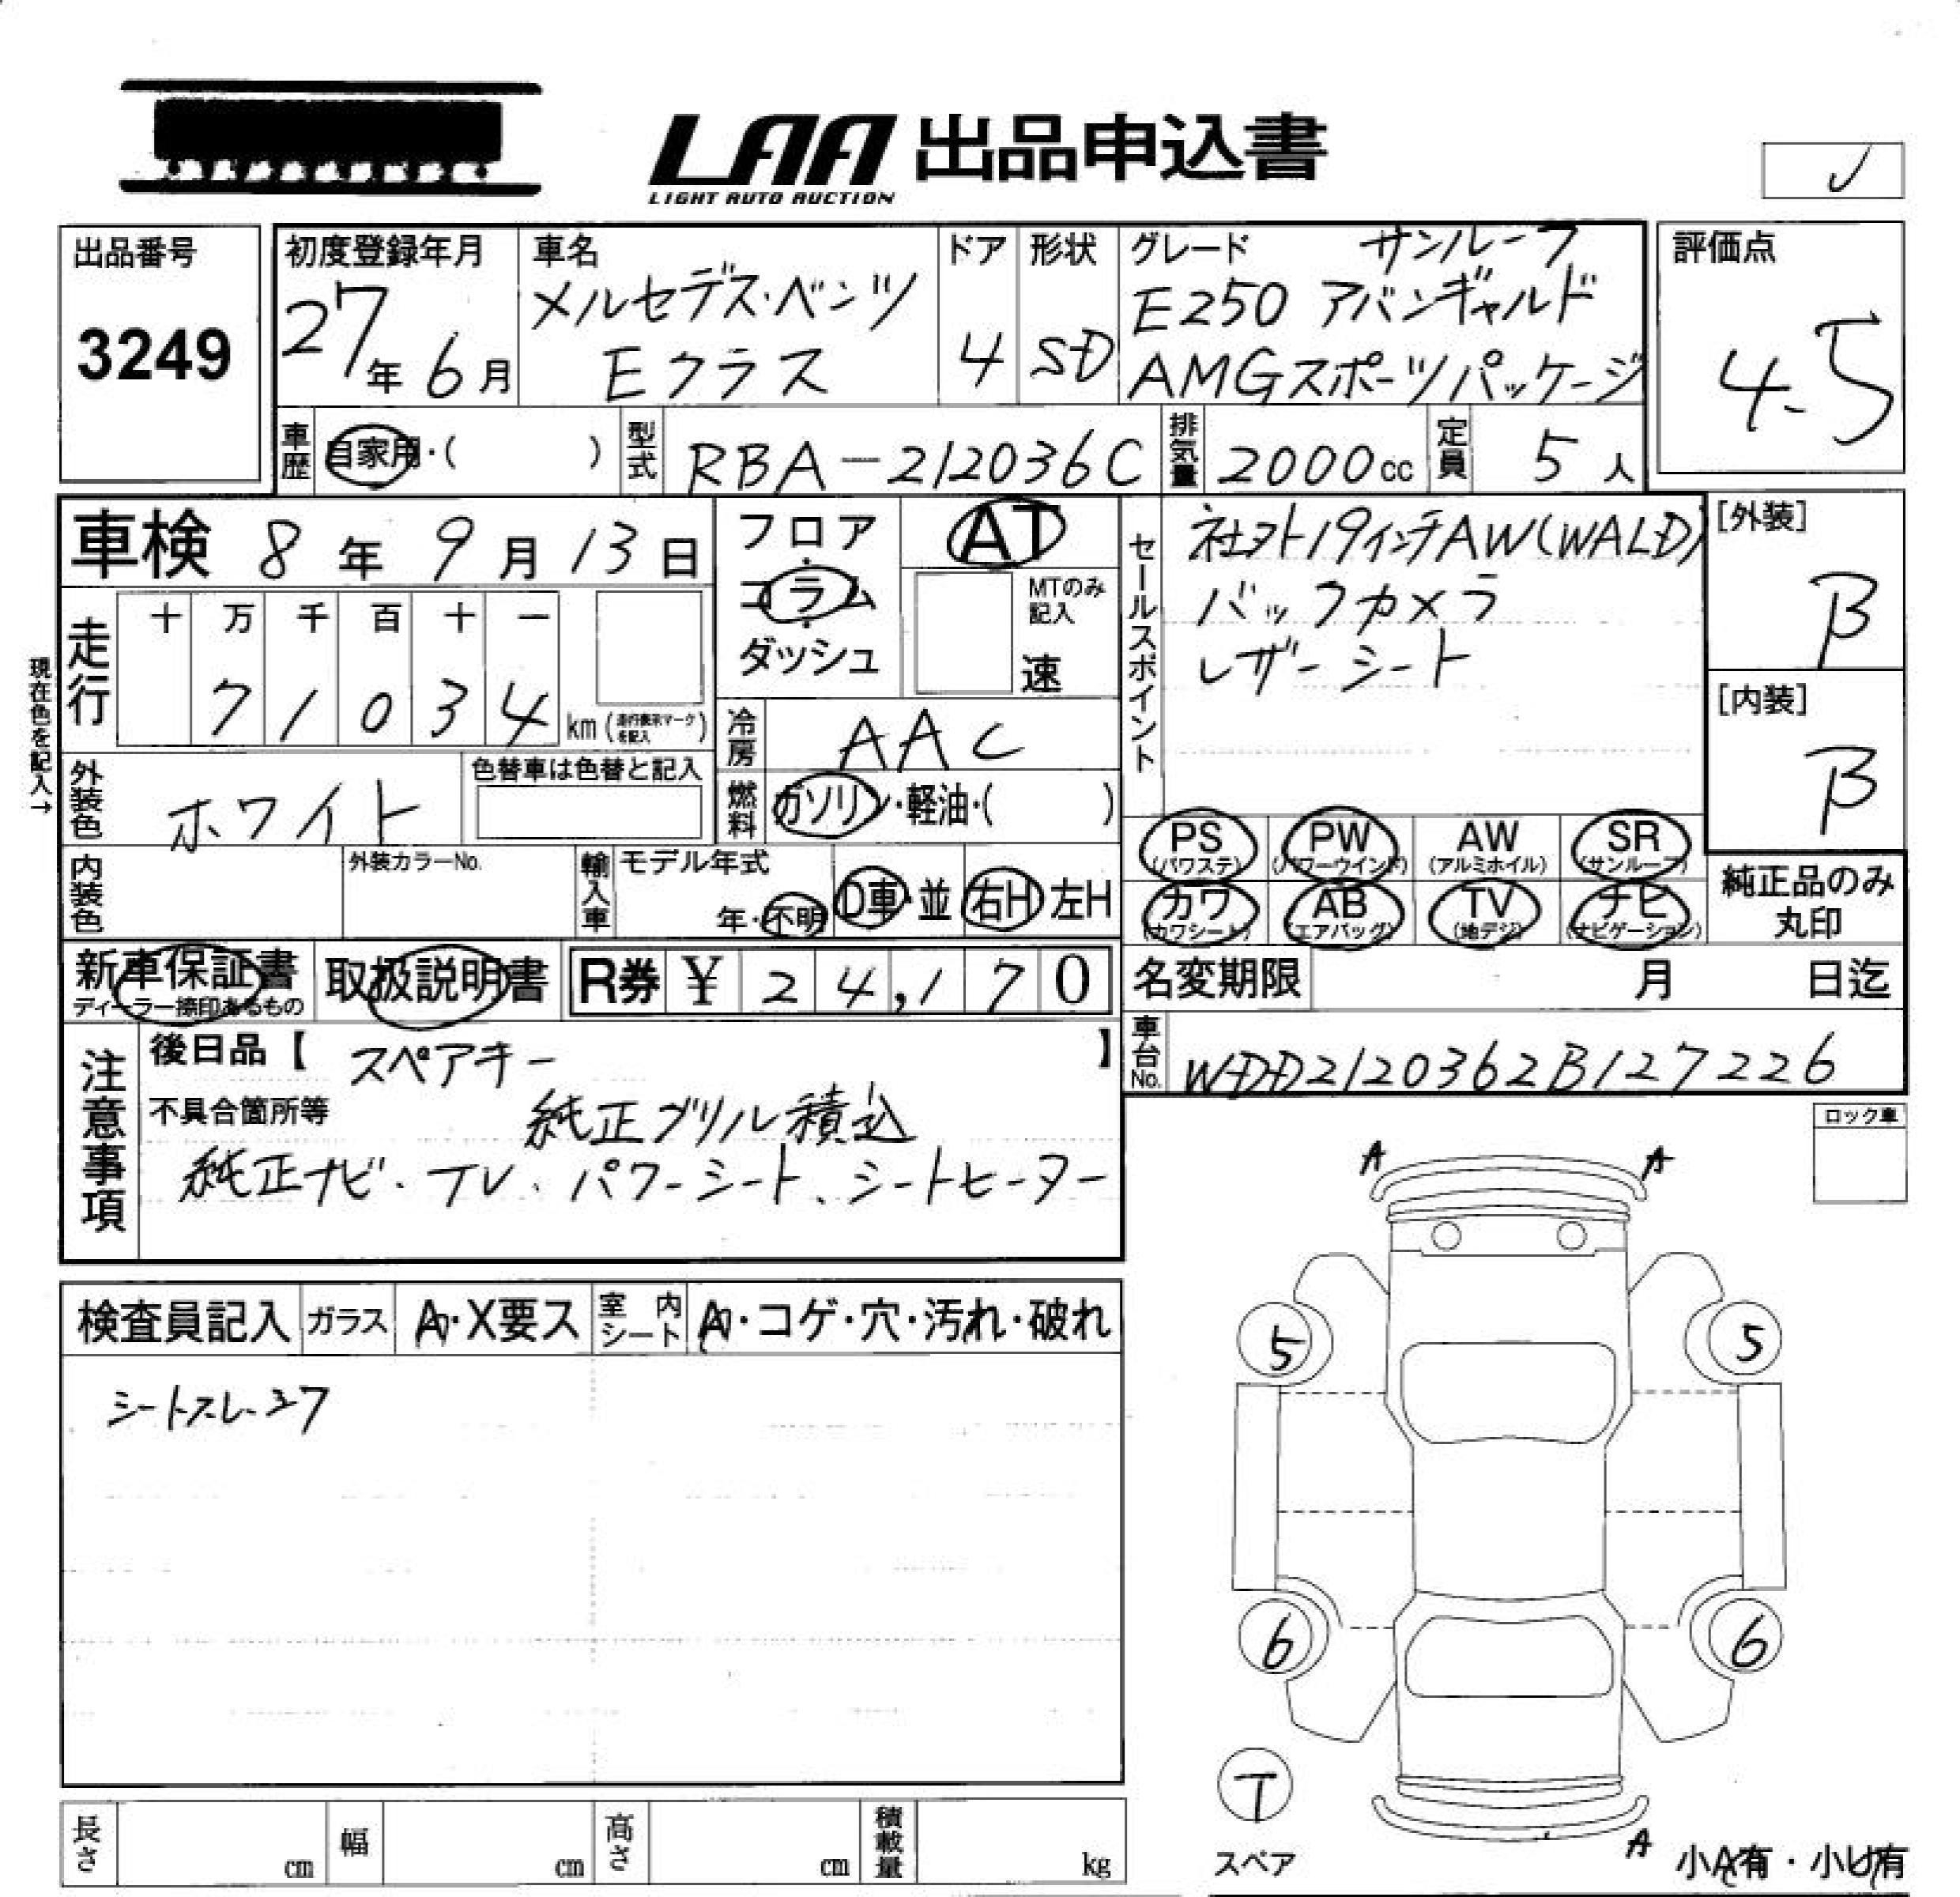 LAA 出品申込書
LIGHT AUTO AUCTION
出品番号
3249
初度登録年月
27年6月
車名
メルセデス・ベンツ
Eクラス
ドア
4
形状
SD
グレード サンルーフ
E250 アバンギャルド
AMGスポーツパッケージ
評価点
4.5
車歴 自家用・( )
型式 RBA-212036C
排気量 2000cc
定員 5人
車検 8年9月13日
フロア・
コラム・
ダッシュ
AT
MTのみ
記入
速
セールスポイント
社外19インチAW(WALD)
バックカメラ
レザーシート
[外装]
B
[内装]
B
現在色を記入→
走行
十 万 千 百 十 一
7 1 0 3 4 km(走行表示マークを記入)
冷房 AAC
外装色 ホワイト
色替車は色替と記入
燃料 ガソリン・軽油・( )
PS (パワステ) PW (パワーウインド) AW (アルミホイル) SR (サンルーフ)
カワ (カワシート) AB (エアバッグ) TV (地デジ) ナビ (ナビゲーション)
純正品のみ
丸印
内装色
外装カラーNo.
輸入車
モデル年式
年・不明
D車・並
右H 左H
新車保証書
ディーラー捺印あるもの
取扱説明書
R券 ¥ 24,170
名変期限 月 日迄
車台No. WDD2120362B127226
注意事項
後日品【 スペアキー 】
不具合箇所等
純正グリル積込
純正ナビ・TV、パワーシート、シートヒーター
ロック車
検査員記入 ガラス A・X要ス 室内シート A・コゲ・穴・汚れ・破れ
シートスレ・コゲ
A A
5 5
6 6
T
スペア
A
小A有・小U有
長さ cm 幅 cm 高さ cm 積載量 kg